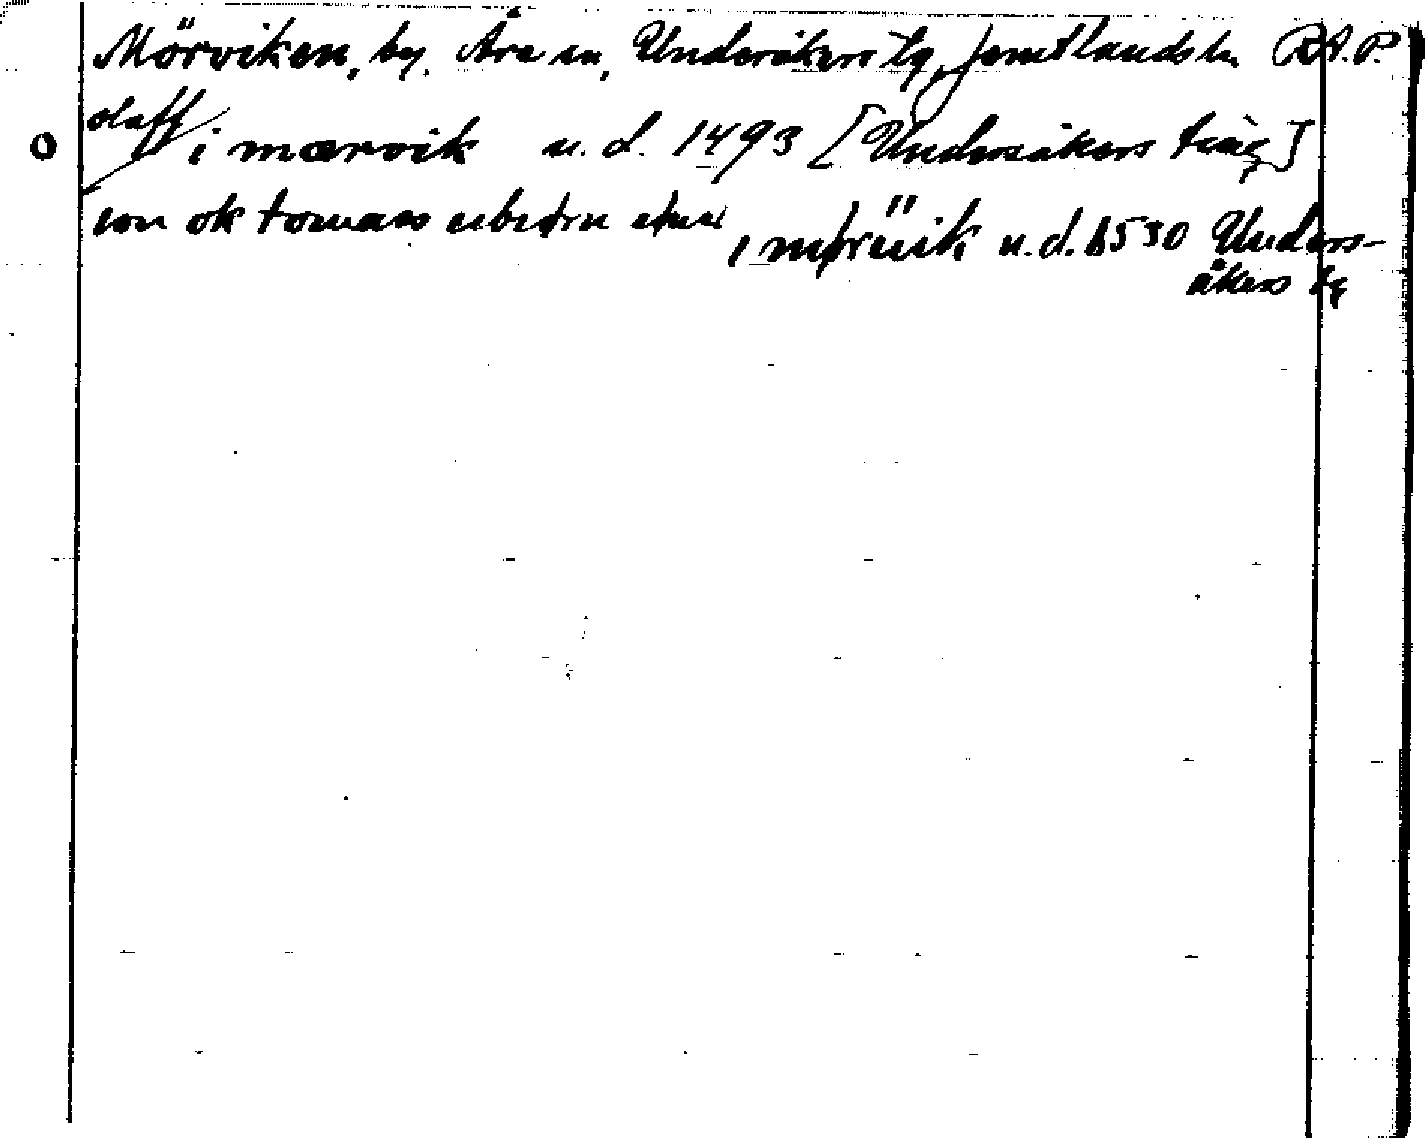 Mörviken, by. Åre sn, Undersåkers tg, Jemtlands ln RA.P.
olaff i mærvik u.d. 1493 [Undersåkers ting]
ion ok tomass
i mørüik u.d. 1530 Unders-
åkers tg